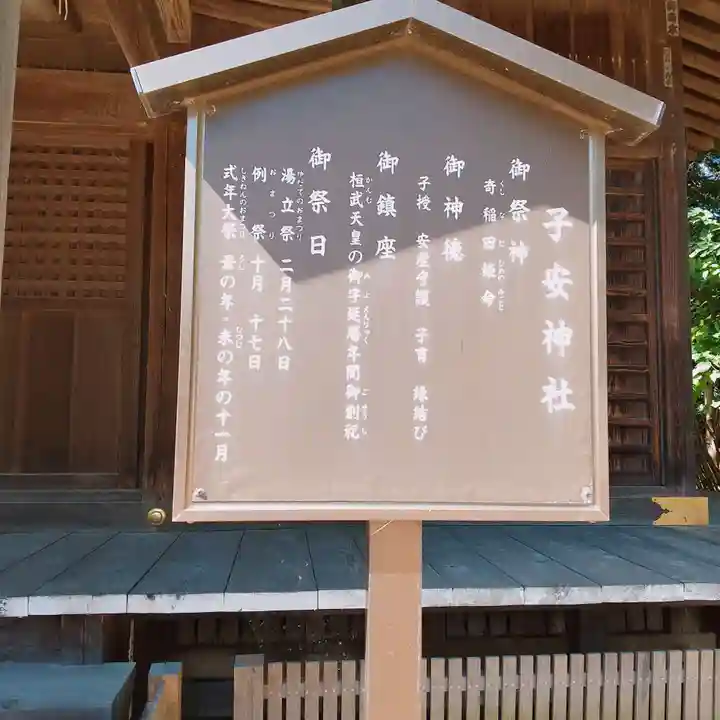 子安神社
御祭神
奇稲田姫命
御神徳
子授 安産守護 子育 縁結び
御鎮座
桓武天皇の御宇延暦年間御創祀
御祭日
湯立祭 二月二十八日
例祭 十月 十七日
式年大祭 丑の年・未の年の十一月